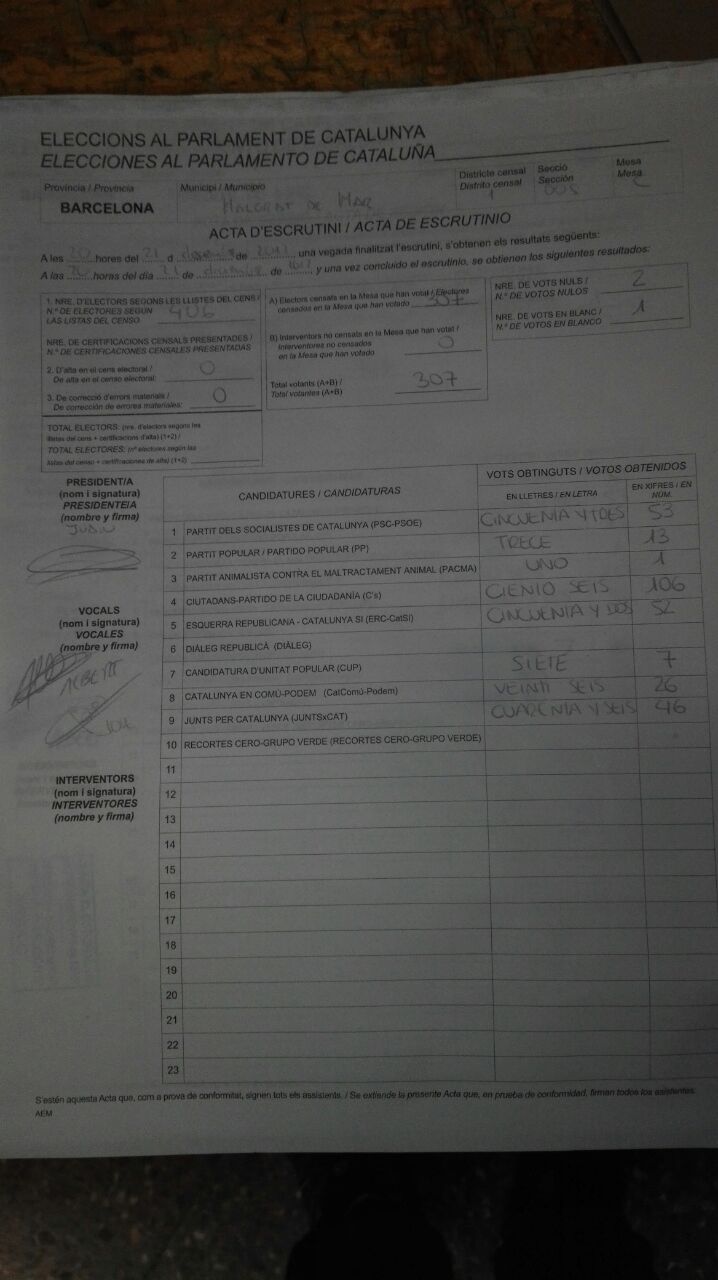 ELECCIONS AL PARLAMENT DE CATALUNYA
ELECCIONES AL PARLAMENTO DE CATALUÑA
Província / Provincia
BARCELONA
Municipi / Municipio
MALGRAT DE MAR
Districte censal
Distrito censal
1
Secció
Sección
005
Mesa
Mesa
ACTA D'ESCRUTINI / ACTA DE ESCRUTINIO
A les 20 hores del 21 d desembre de una vegada finalitzat l'escrutini, s'obtenen els resultats següents:
A las horas del día 21 de de y una vez concluido el escrutinio, se obtienen los siguientes resultados:
1. NRE. D'ELECTORS SEGONS LES LLISTES DEL CENS /
N.º DE ELECTORES SEGÚN
LAS LISTAS DEL CENSO 406
NRE. DE CERTIFICACIONS CENSALS PRESENTADES /
N.º DE CERTIFICACIONES CENSALES PRESENTADAS
2. D'alta en el cens electoral /
De alta en el censo electoral: 0
3. De correcció d'errors materials /
De corrección de errores materiales: 0
TOTAL ELECTORS: (nre. d'electors segons les
llistes del cens + certificacions d'alta) (1+2) /
TOTAL ELECTORES: (nº electores según las
listas del censo + certificaciones de alta) (1+2)
A) Electors censats en la Mesa que han votat / Electores
censados en la Mesa que han votado 307
B) Interventors no censats en la Mesa que han votat /
Interventores no censados
en la Mesa que han votado 0
Total votants (A+B) /
Total votantes (A+B) 307
NRE. DE VOTS NULS /
N.º DE VOTOS NULOS 2
NRE. DE VOTS EN BLANC /
N.º DE VOTOS EN BLANCO 1
PRESIDENT/A
(nom i signatura)
PRESIDENTE/A
(nombre y firma)
VOCALS
(nom i signatura)
VOCALES
(nombre y firma)
ALBERT
INTERVENTORS
(nom i signatura)
INTERVENTORES
(nombre y firma)
CANDIDATURES / CANDIDATURAS
VOTS OBTINGUTS / VOTOS OBTENIDOS
EN LLETRES / EN LETRA
EN XIFRES / EN NÚM.
1 PARTIT DELS SOCIALISTES DE CATALUNYA (PSC-PSOE) CINCUENTA Y TRES 53
2 PARTIT POPULAR / PARTIDO POPULAR (PP) TRECE 13
3 PARTIT ANIMALISTA CONTRA EL MALTRACTAMENT ANIMAL (PACMA) UNO 1
4 CIUTADANS-PARTIDO DE LA CIUDADANÍA (C's) CIENTO SEIS 106
5 ESQUERRA REPUBLICANA - CATALUNYA SÍ (ERC-CatSÍ) CINCUENTA Y DOS 52
6 DIÀLEG REPUBLICÀ (DIÀLEG)
7 CANDIDATURA D'UNITAT POPULAR (CUP) SIETE 7
8 CATALUNYA EN COMÚ-PODEM (CatComú-Podem) VEINTI SEIS 26
9 JUNTS PER CATALUNYA (JUNTSxCAT) CUARENTA Y SEIS 46
10 RECORTES CERO-GRUPO VERDE (RECORTES CERO-GRUPO VERDE)
11
12
13
14
15
16
17
18
19
20
21
22
23
S'estén aquesta Acta que, com a prova de conformitat, signen tots els assistents. / Se extiende la presente Acta que, en prueba de conformidad, firman todos los asistentes.
AEM